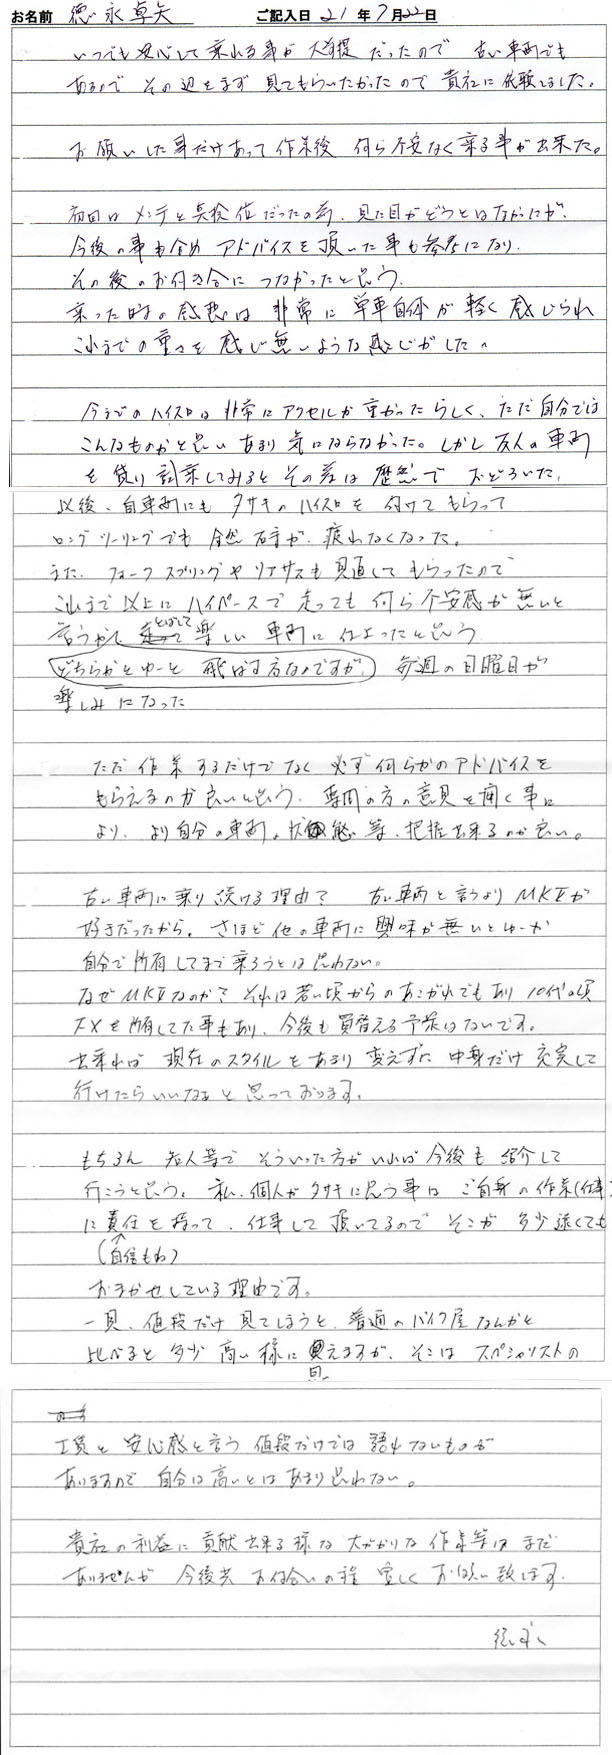 お名前 徳永卓矢 ご記入日 21年7月22日
いつでも安心して乗れる事が大前提だったので 古い車両でも
あるので その辺をまず見てもらいたかったので 貴社に依頼しました。
お願いした事だけあって作業後 何ら不安なく乗る事が出来た。
前回はメンテと点検位だった為、見た目がどうとはなかったが、
今後の事も含め アドバイスを頂いた事も参考になり、
その後のお付き合につながったと思う。
乗った時の感想は 非常に単車自体が軽く感じられ
これまでの重々を感じ無いような感じがした。
今までのハイスロは非常にアクセルが重かったらしく、ただ自分では
こんなものかと思い あまり気にならなかった。しかし友人の車両
を借り試乗してみると その差は歴然でおどろいた。
以後、自車両にもタサキのハイスロを付けてもらって
ロングツーリングでも全然右手が、疲れなくなった。
また、フォークスプリングやリアサスも見直してもらったので
これまで以上にハイペースで走っても何ら不安感が無いと
言うか とばして 楽しい車両に仕上ったと思う。
(どちらかとゆーと 飛ばす方なのですが、) 毎週の日曜日が
楽しみになった
ただ作業するだけでなく必ず何らかのアドバイスを
もらえるのが良いと思う。専門の方の意見を聞く事に
より、より自分の車両、状態等、把握出来るのが良い。
古い車両に乗り続ける理由? 古い車両と言うよりMKⅡが
好きだったから。さほど他の車両に興味が無いとゆーか
自分で所有してまで乗ろうとは思わない。
なぜMKⅡなのか? それは若い頃からのあこがれでもあり10代の頃
FXを所有してた事もあり、今後も買替える予定はないです。
出来れば 現在のスタイルをあまり変えずに 中身だけ充実して
行けたらいいなぁと思っております。
もちろん 知人等でそういった方がいれば今後も紹介して
行こうと思う。私、個人がタサキに思う事は ご自身の作業(仕事)
に責任を持って、仕事して頂いてるので そこが多少遠くても
(自信もね)
おまかせしている理由です。
一見、値段だけ見てしまうと、普通のバイク屋なんかと
比べると 多少高い様に見えますが、そこはスペシャリストの
見
工賃と安心感と言う値段だけでは語れないものが
ありますので 自分は高いとはあまり思わない。
貴社の利益に貢献出来る様な大がかりな作業等はまだ
ありませんが 今後共お付合いの程 宜しくお願い致します。
徳永